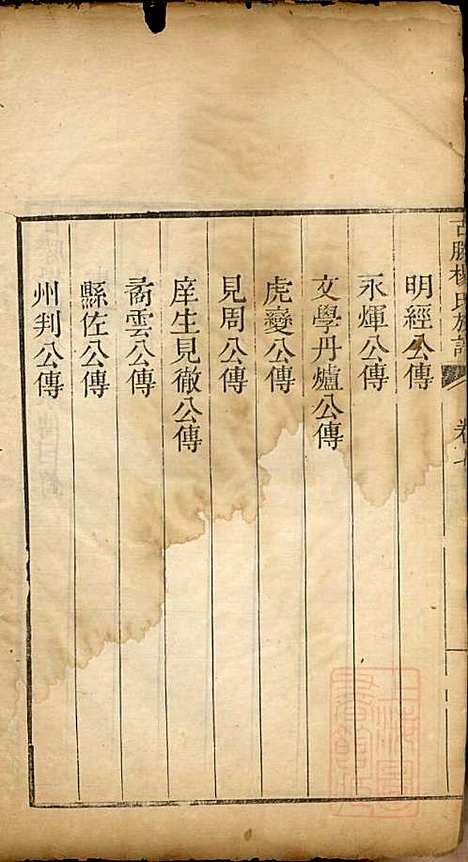 古勝楊氏族譜 卷七
明經公傳
永煇公傳
文學丹爐公傳
虎變公傳
見周公傳
庠生見徹公傳
矞雲公傳
縣佐公傳
州判公傳